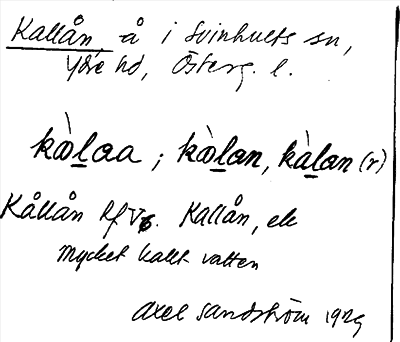 Kallån å i Svinhults sn,
Ydre hd, Österg. l.
kòlaa; kòlan, kàlan (r)
Kållån Kallån, ek
mycket kallt vatten
Axel Sandström 1929